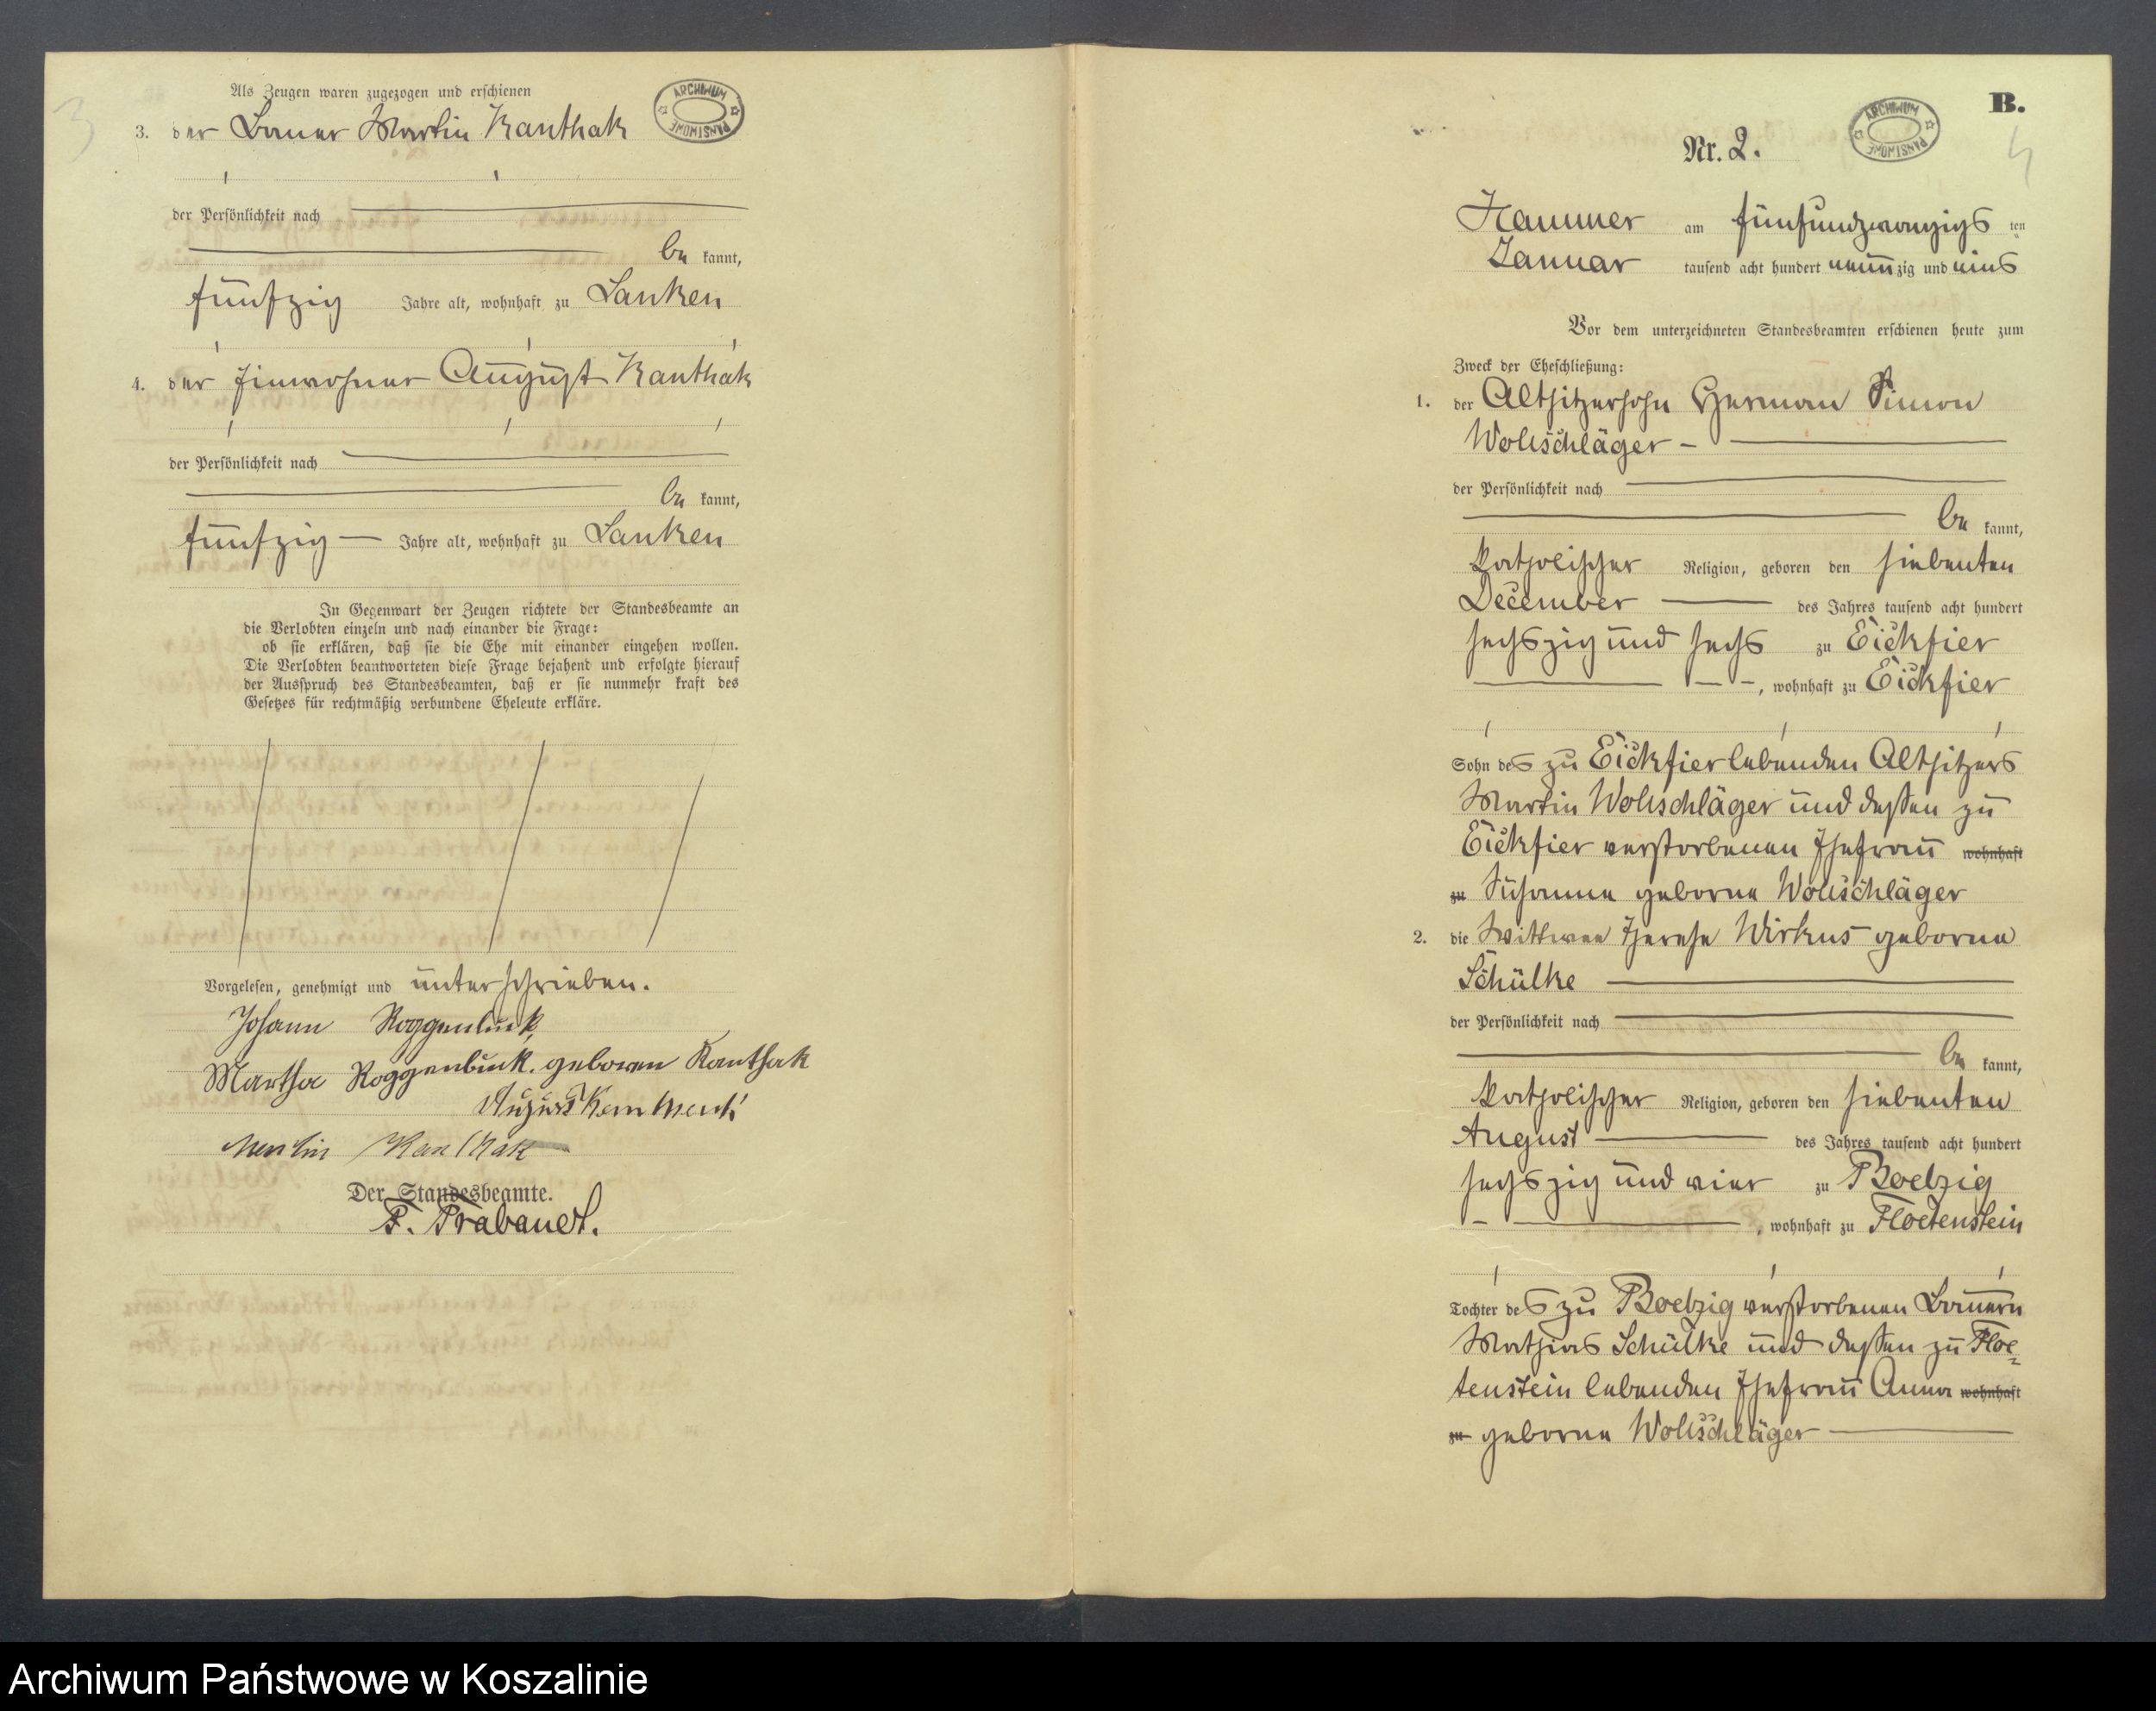 3
Als Zeugen waren zugezogen und erschienen
3. der Bauer Martin Kanthak
ARCHIWUM PAŃSTWOWE
der Persönlichkeit nach
be kannt,
fünfzig Jahre alt, wohnhaft zu Lanken
4. der Einwohner August Kanthak
der Persönlichkeit nach
be kannt,
fünfzig — Jahre alt, wohnhaft zu Lanken
In Gegenwart der Zeugen richtete der Standesbeamte an
die Verlobten einzeln und nach einander die Frage:
ob sie erklären, daß sie die Ehe mit einander eingehen wollen.
Die Verlobten beantworteten diese Frage bejahend und erfolgte hierauf
der Ausspruch des Standesbeamten, daß er sie nunmehr kraft des
Gesetzes für rechtmäßig verbundene Eheleute erkläre.
Vorgelesen, genehmigt und unterschrieben.
Johann Roggenbuck
Martha Roggenbuck. geboren Kanthak
August
Martin Kanthak
Der Standesbeamte.
F. Trabandt.
B.
ARCHIWUM PAŃSTWOWE
4
Nr. 2.
Hammer am fünfundzwanzigs ten
Januar tausend acht hundert neunzig und eins
Vor dem unterzeichneten Standesbeamten erschienen heute zum
Zweck der Eheschließung:
1. der Altsitzersohn Herman Simon
Wollschläger –
der Persönlichkeit nach
be kannt,
katholischer Religion, geboren den siebenten
December — des Jahres tausend acht hundert
sechszig und sechs zu Eickfier
, wohnhaft zu Eickfier
Sohn des zu Eickfier lebenden Altsitzers
Martin Wollschläger und dessen zu
Eickfier verstorbenen Ehefrau wohnhaft
zu Susanna geborne Wollschläger
2. die Wittwe Therese Wirkus geborne
Schülke
der Persönlichkeit nach
be kannt,
katholischer Religion, geboren den siebenten
August — des Jahres tausend acht hundert
sechszig und vier zu Boelzig
, wohnhaft zu Floetenstein
Tochter des zu Boelzig verstorbenen Bauern
Mathias Schülke und dessen zu Floe=
tenstein lebenden Ehefrau Anna wohnhaft
zu geborne Wollschläger —
Archiwum Państwowe w Koszalinie